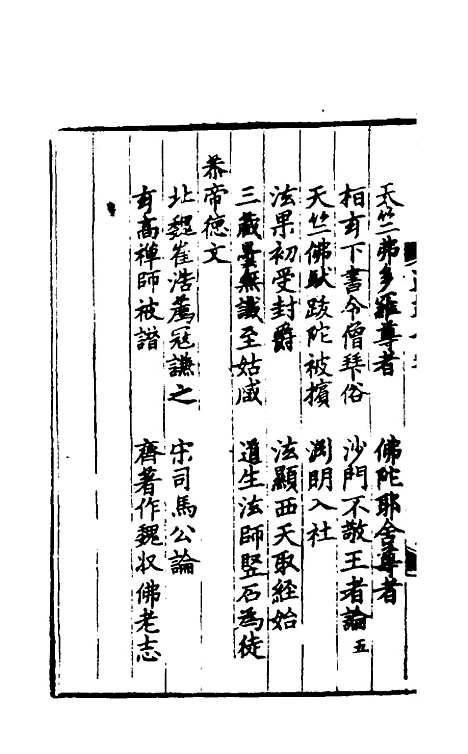 天竺弗多羅尊者　佛陀耶舍尊者
桓玄下書令僧拜俗　沙門不敬王者論五
天竺佛馱跋陀被擯　淵明入社
法果初受封爵　法顯西天取經始
三藏曇無讖至姑臧　道生法師竪石為徒
恭帝德文
北魏崔浩薦冠謙之　宋司馬公論
玄高禅師被譖　齊著作魏収佛老志